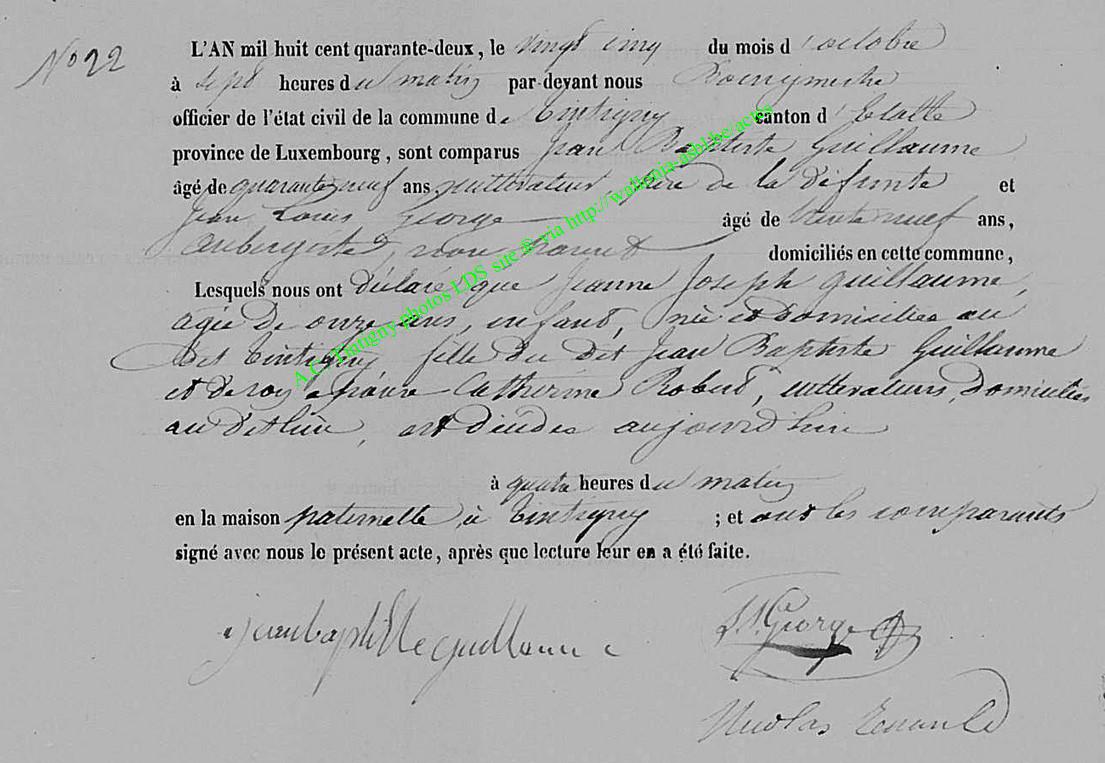 N° 22
L'AN mil huit cent quarante-deux, le vingt cinq du mois d'octobre
à sept heures du matin par-devant nous Bourgmestre
officier de l'état civil de la commune de Tintigny canton d'Etalle
province de Luxembourg, sont comparus Jean Baptiste Guillaume
âgé de quarante neuf ans cultivateur, père de la défunte et
Jean Louis George âgé de trente neuf ans,
aubergiste, non parent domiciliés en cette commune,
Lesquels nous ont déclaré que Jeanne Joseph Guillaume,
agée de onze ans, enfant, née et domiciliée au
dit Tintigny fille du dit Jean Baptiste Guillaume
et de son épouse Catherine Robert, cultivateurs, domiciliés
au dit lieu, est décédée aujourd'hui
à quatre heures du matin
en la maison paternelle à Tintigny ; et ont les comparants
signé avec nous le présent acte, après que lecture leur en a été faite.
jeanbaptiste guillaume
J. L. George
Nicolas
A.C. Tintigny photos LDS site © via http://wallonia-asbl.be/actes